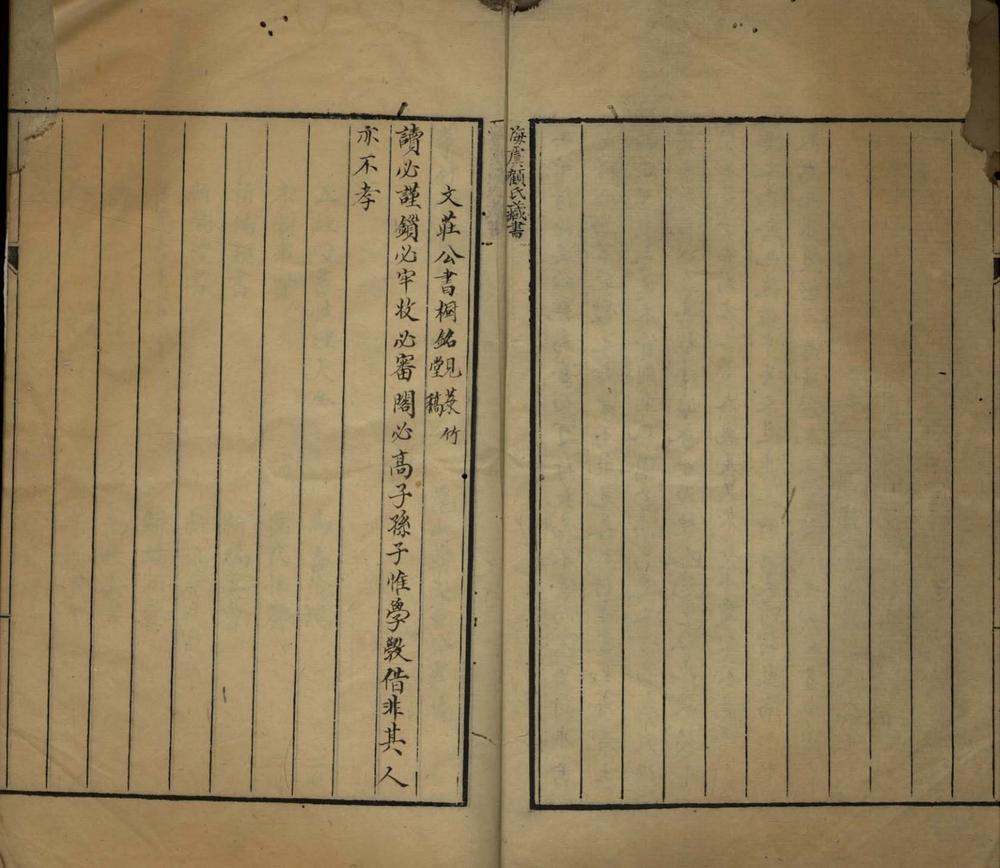 海虞顧氏藏書
文莊公書橱銘見菉竹堂稿
讀必謹鎖必牢收必審閣必高子孫子惟學斆借非其人
亦不孝